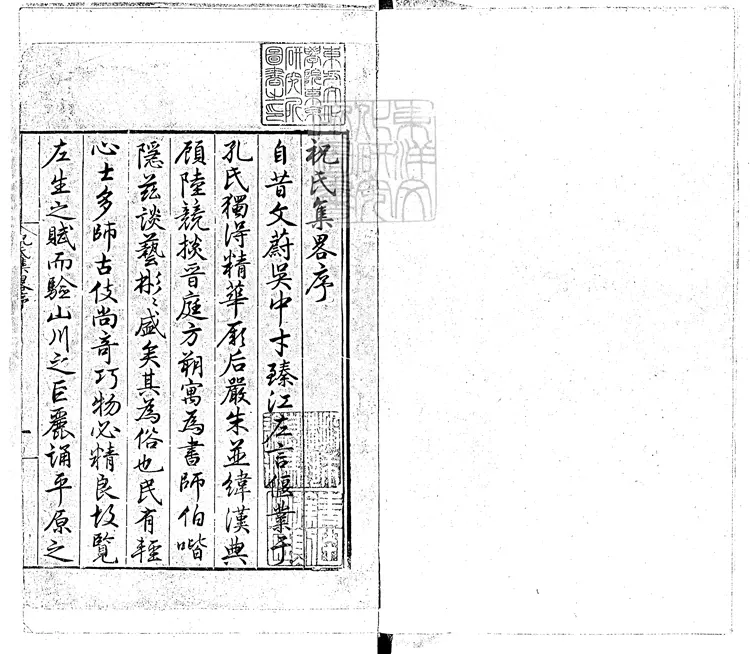 祝氏集畧序
自昔文蔚吳中才臻江左言偃業于
孔氏獨得精華厥后嚴朱並緯漢典
顧陸競掞晉庭方朔寓為書師伯喈
隱茲談藝彬〻盛矣其為俗也民有輕
心士多師古伎尚奇巧物必精良故覽
左生之賦而驗山川之巨麗誦平原之
祝氏集畧序
一
東方文化
學院東京
研究所
圖書之印
東洋文
化研究